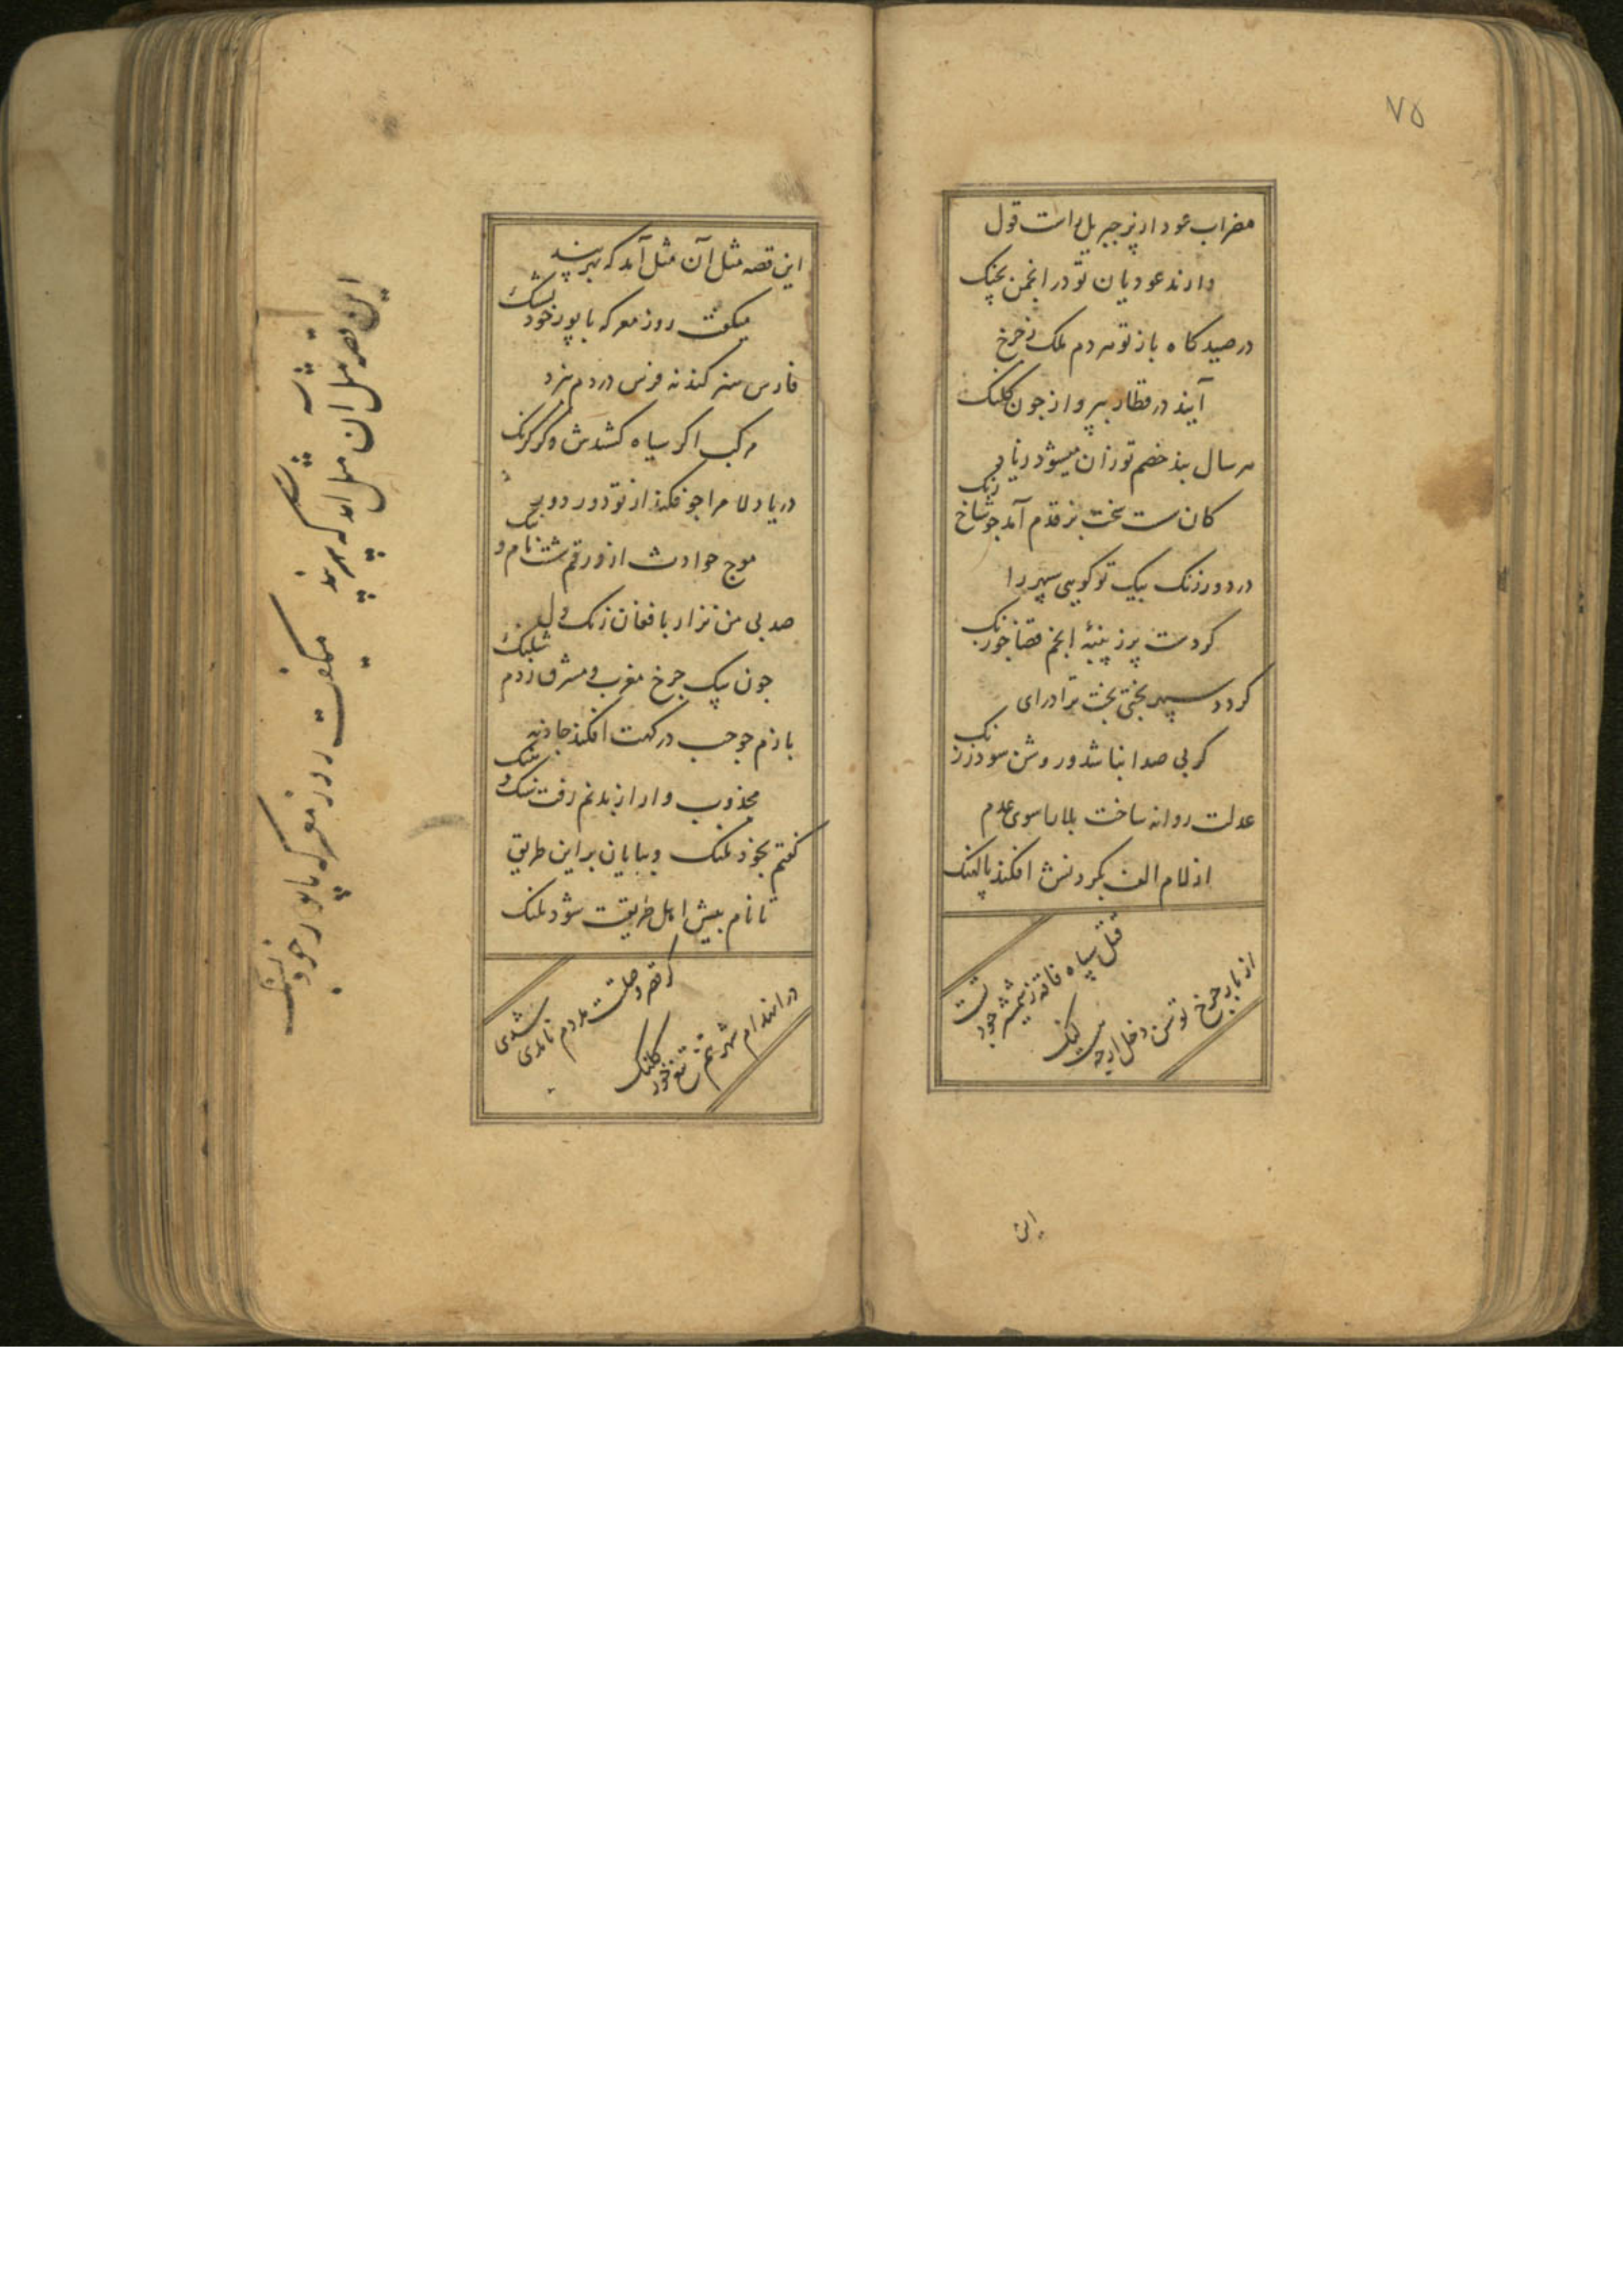 ۷۵
مضراب عود از پر جبریل راست قول
دارند عودیان تو در انجمن بچنک
در صیدکاه باز تو هر دم ملک ز چرخ
آیند در قطار بپرواز جون کلنک
هر سال بذ خصم تو زان میشود زیاد
کان سست سخت بز قدم آمد جو شاخ رنک
در دور رنک بیک تو کویی سپهر را
کردست پر ز پنبهٔ انجم قضا جو رنک
کردد سپهر بختی بخت ترا درای
کر بی صدا نباشد و روشن سود ز زنک
عدلت روانه ساخت بلا را سوی عدم
از لام الف بکردنش افکند پالهنک
فتل سپاه فاقه ز نیمشر جود تست
از بار چرخ توسن دخل ارچه هست لنک
این
این قصه مثل آن مثل آمد که ببر پیر
میکفت روز معرکه با پور خود پشنک
فارس سنر کند نه فرس در دم نبرد
مرکب اکر سیاه کشندش و کر کرنک
دریا دلا مرا جو فکند از تو دور دور
موج حوادث از ورقم شست نام و ننک
صد پی من نزار با فغان زنک دل
جون پیک جرخ مغرب و مشرق زدم شلنک
بازم جو حب در کهت افکند جاذبه
مجذوب وار از بدنم رفت سنک و
کفتم بخود ملنک و بیایان بر این طریق
تا نام بیش اهل طریقت شود ملنک
کر قصر دولتت مددم نامدی شدی
در انهدام شهر تنم تیغ خور کلنک
این قصه مثل ان مثل امد که ببر پیر
میکفت روز معرکه با پور خود پشنک